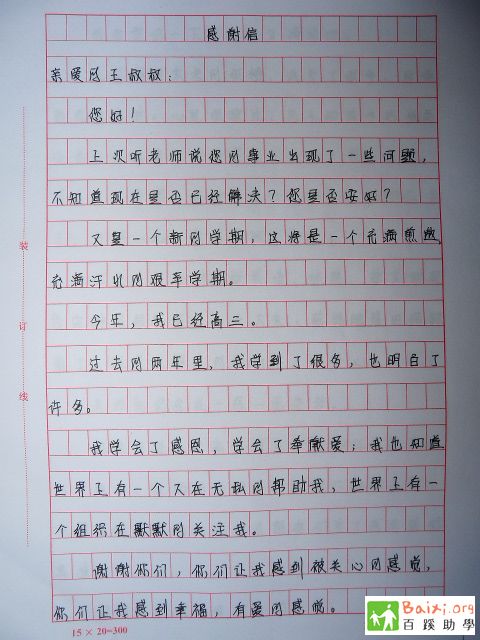 感谢信
亲爱的王叔叔：
您好！
上次听老师说您的事业出现了一些问题，
不知道现在是否已经解决？您是否安好？
又是一个新的学期，这将是一个充满煎熬，
充满汗水的艰辛学期。
今年，我已经高三。
过去的两年里，我学到了很多，也明白了
许多。
我学会了感恩，学会了奉献爱；我也知道
世界上有一个人在无私的帮助我，世界上有一
个组织在默默的关注我。
谢谢你们，你们让我感到被关心的感觉，
你们让我感到幸福，有爱的感觉。
装
订
线
15 × 20=300
Baixi.org
百蹊助學